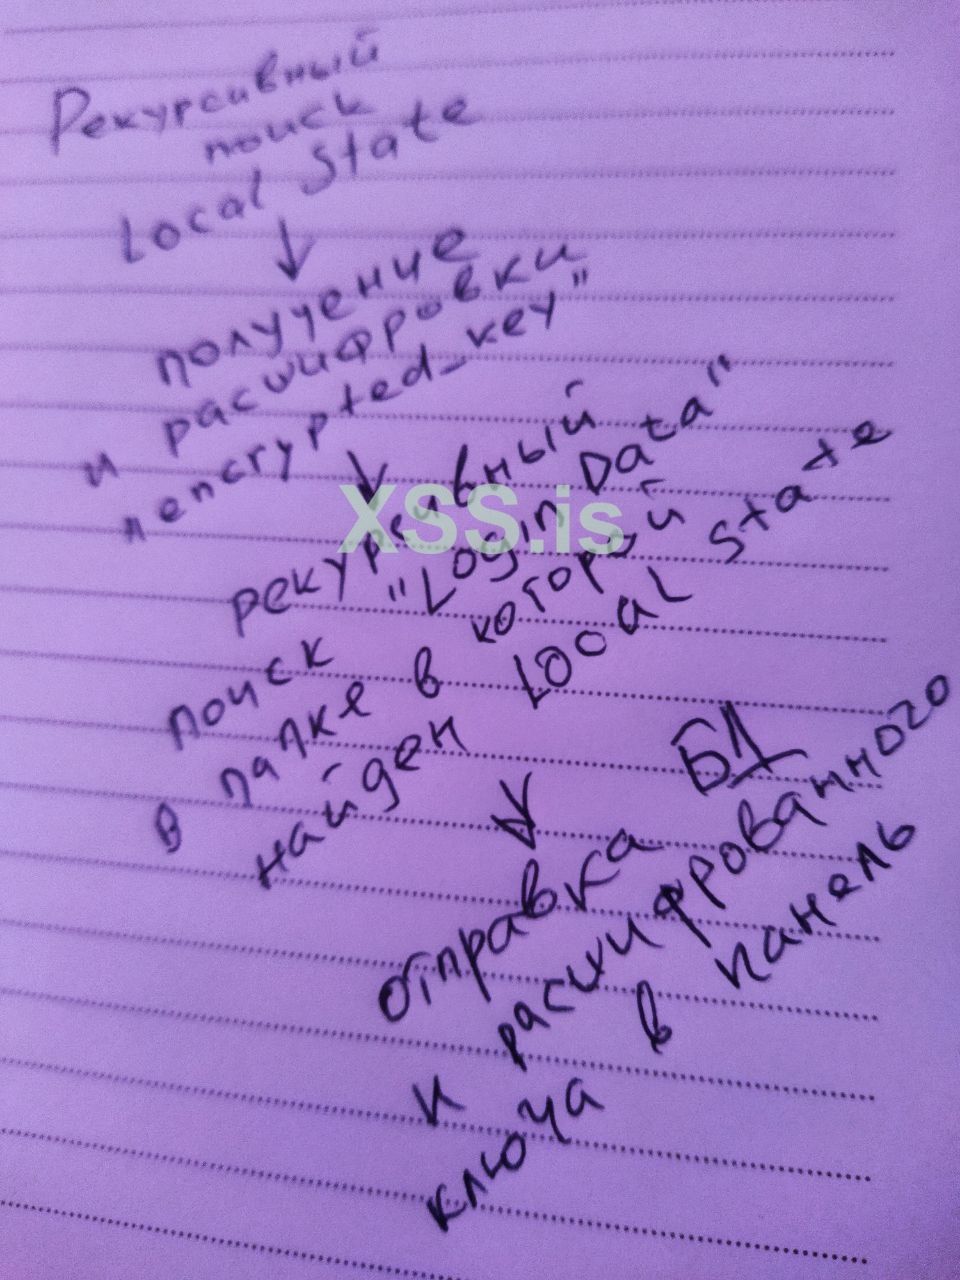 Рекурсивный
поиск
Local State
получение
и расшифровки
"encrypted_key"
XSS.is
рекурсивный
поиск "Login Data"
в папке в которой
найден Local State
отправка БД
и расшифрованного
ключа в панель